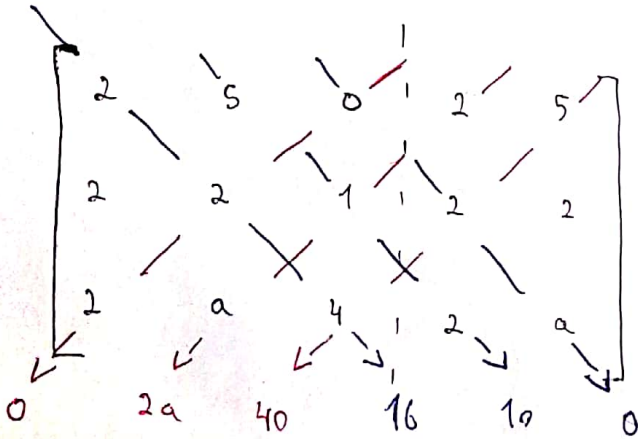 2 5 0 2 5
2 2 1 2 2
2 a 4 2 a
0 2a 40 16 10 0